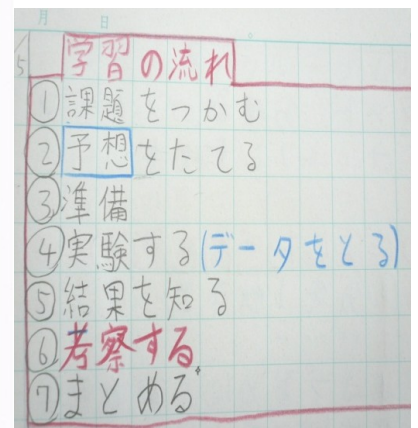 月 日
5
学習の流れ
①課題をつかむ
②予想をたてる
③準備
④実験する(データをとる)
⑤結果を知る
⑥考察する
⑦まとめる